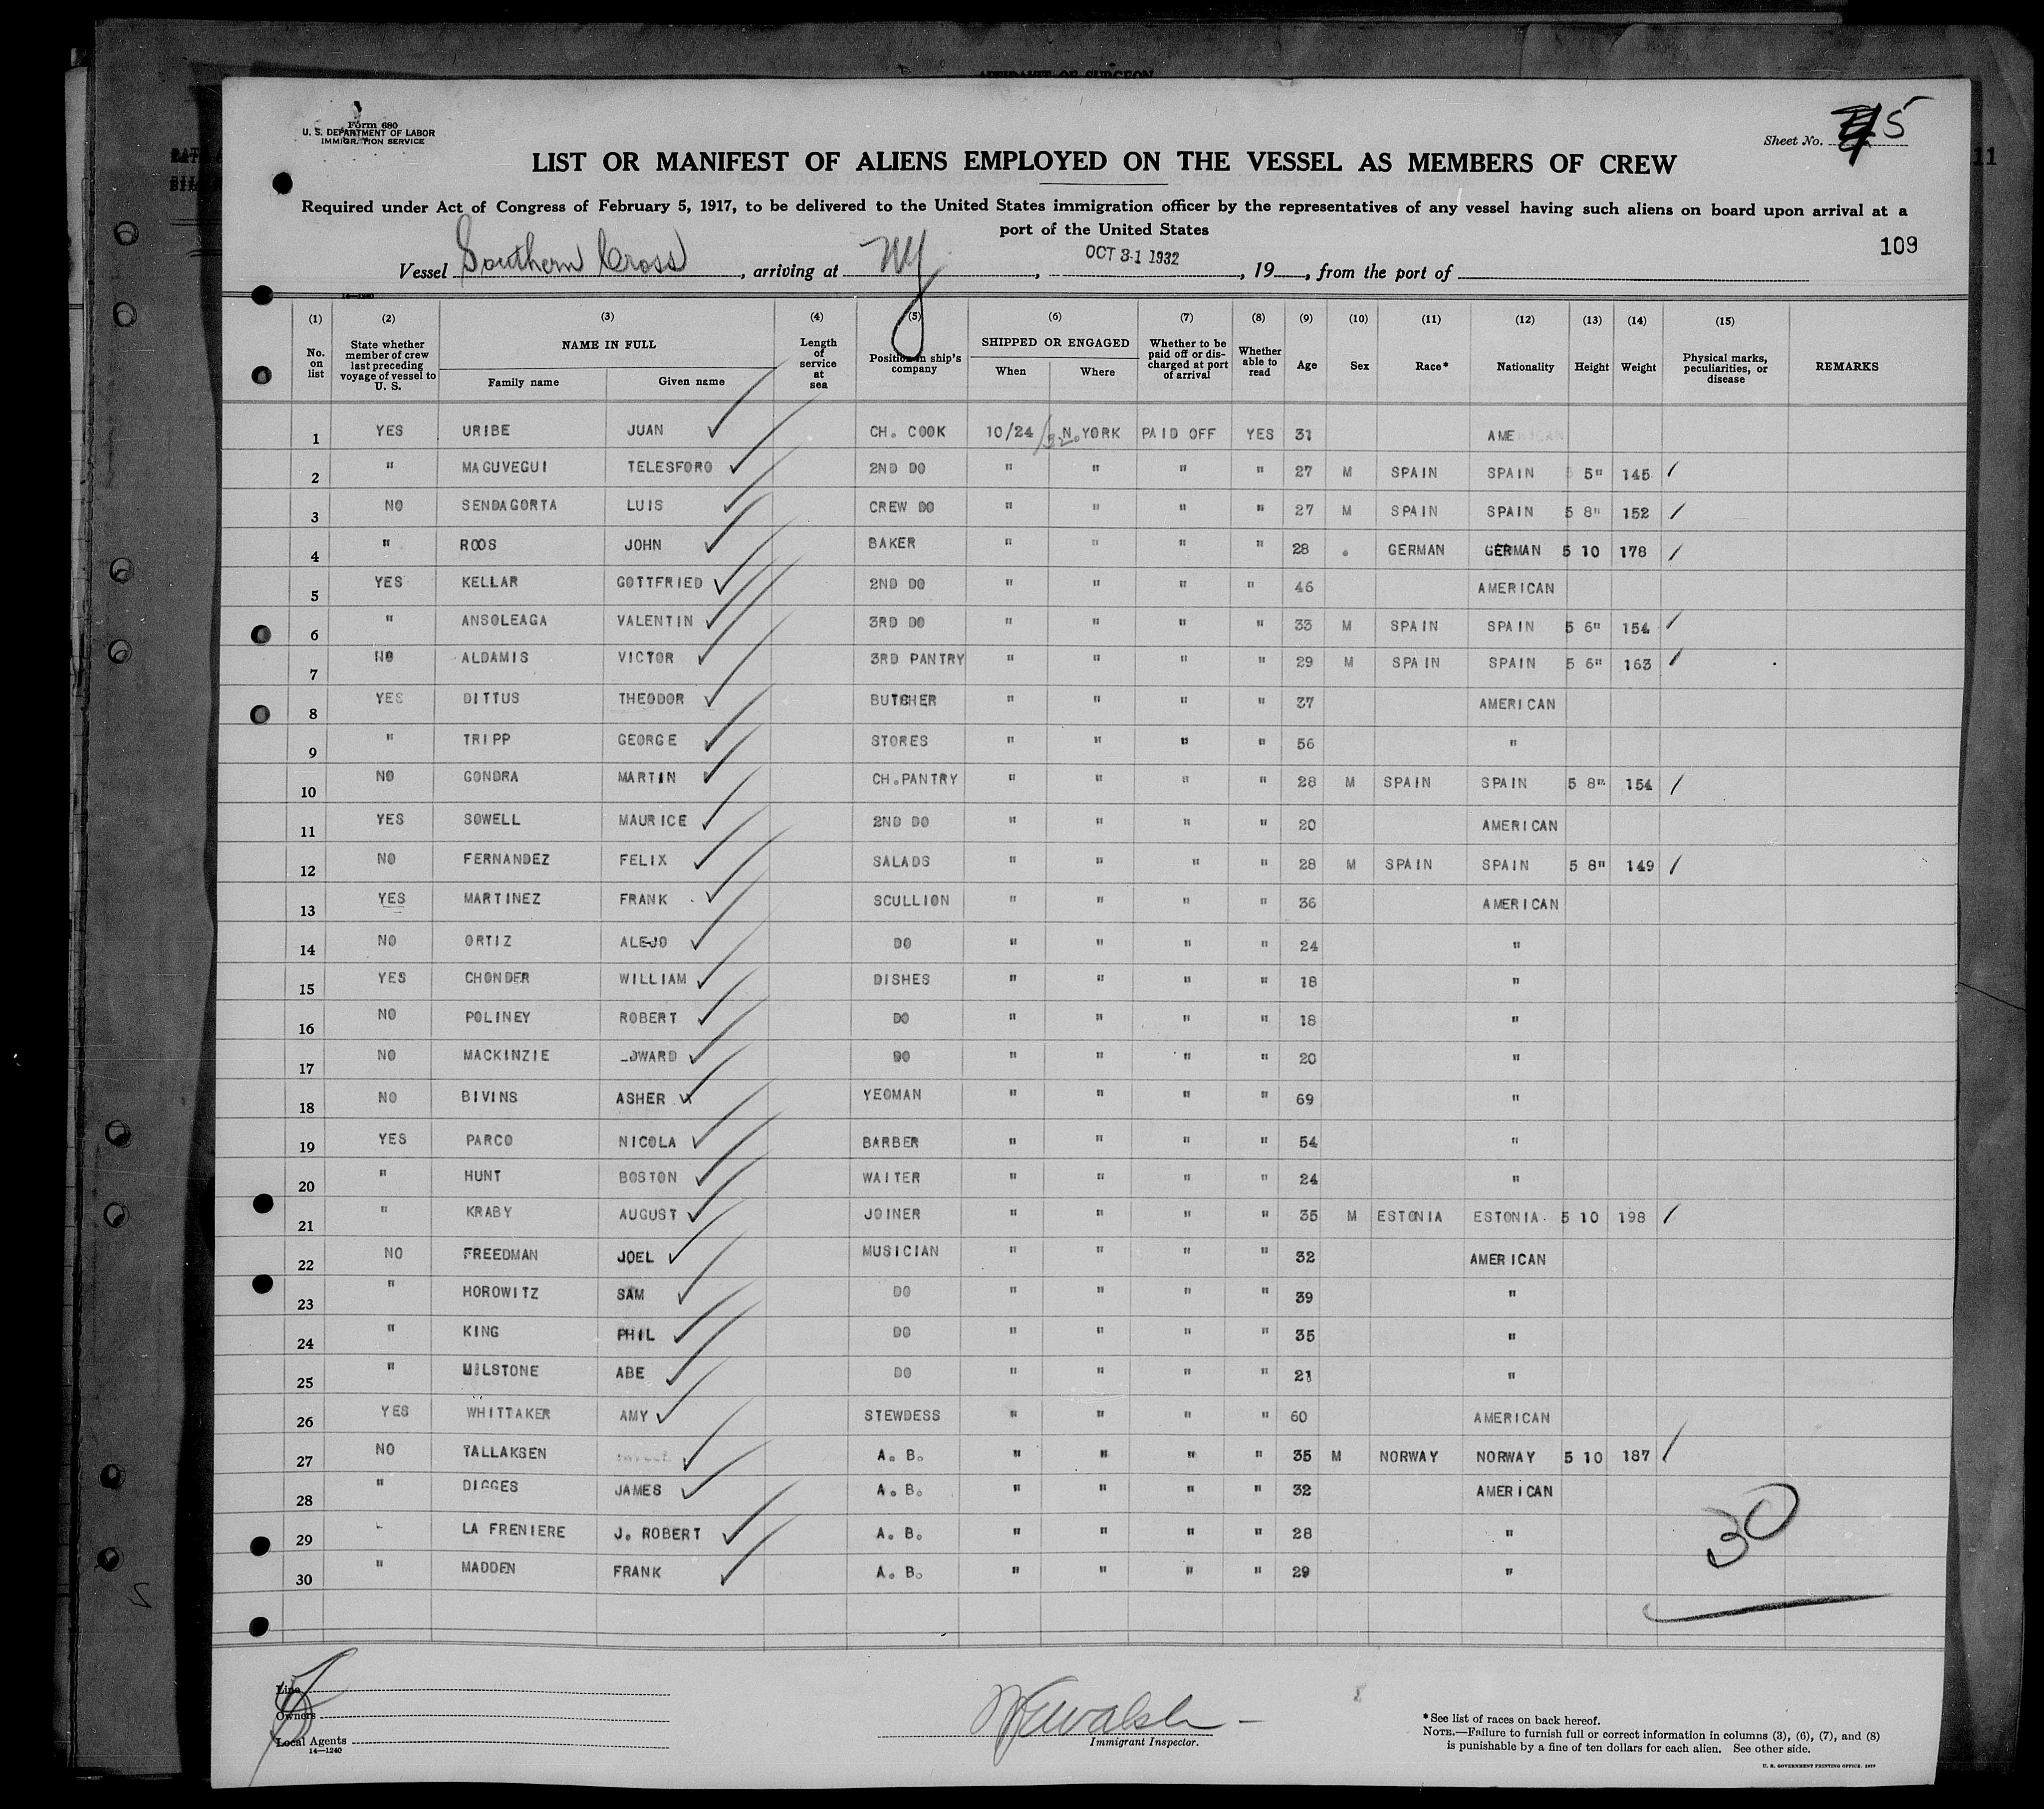 AFFIDAVIT OF SURGEON
Form 680
U. S. DEPARTMENT OF LABOR
IMMIGRATION SERVICE
Sheet No. 5
11
LIST OR MANIFEST OF ALIENS EMPLOYED ON THE VESSEL AS MEMBERS OF CREW
Required under Act of Congress of February 5, 1917, to be delivered to the United States immigration officer by the representatives of any vessel having such aliens on board upon arrival at a
port of the United States
109
Vessel Southern Cross, arriving at NY, OCT 31 1932, 19, from the port of
14—1240
(1) (2) (3) (4) (5) (6) (7) (8) (9) (10) (11) (12) (13) (14) (15)
No. on list State whether member of crew last preceding voyage of vessel to U. S. NAME IN FULL Family name Given name Length of service at sea Position in ship's company SHIPPED OR ENGAGED When Where Whether to be paid off or discharged at port of arrival Whether able to read Age Sex Race* Nationality Height Weight Physical marks, peculiarities, or disease REMARKS
1 YES URIBE JUAN CH. COOK 10/24/32 N. YORK PAID OFF YES 31 AMERICAN
2 " MAGUVEGUI TELESFORO 2ND DO " " " " 27 M SPAIN SPAIN 5 5" 145
3 NO SENDAGORTA LUIS CREW DO " " " " 27 M SPAIN SPAIN 5 8" 152
4 " ROOS JOHN BAKER " " " " 28 . GERMAN GERMAN 5 10 178
5 YES KELLAR GOTTFRIED 2ND DO " " " " 46 AMERICAN
6 " ANSOLEAGA VALENTIN 3RD DO " " " " 33 M SPAIN SPAIN 5 6" 154
7 NO ALDAMIS VICTOR 3RD PANTRY " " " " 29 M SPAIN SPAIN 5 6" 163
8 YES DITTUS THEODOR BUTCHER " " " " 37 AMERICAN
9 " TRIPP GEORGE STORES " " " " 56 "
10 NO GONDRA MARTIN CH.PANTRY " " " " 28 M SPAIN SPAIN 5 8" 154
11 YES SOWELL MAURICE 2ND DO " " " " 20 AMERICAN
12 NO FERNANDEZ FELIX SALADS " " " " 28 M SPAIN SPAIN 5 8" 149
13 YES MARTINEZ FRANK SCULLION " " " " 36 AMERICAN
14 NO ORTIZ ALEJO DO " " " " 24 "
15 YES CHONDER WILLIAM DISHES " " " " 18 "
16 NO POLINEY ROBERT DO " " " " 18 "
17 NO MACKINZIE EDWARD DO " " " " 20 "
18 NO BIVINS ASHER YEOMAN " " " " 69 "
19 YES PARCO NICOLA BARBER " " " " 54 "
20 " HUNT BOSTON WAITER " " " " 24 "
21 " KRABY AUGUST JOINER " " " " 35 M ESTONIA ESTONIA. 5 10 198
22 NO FREEDMAN JOEL MUSICIAN " " " " 32 AMERICAN
23 " HOROWITZ SAM DO " " " " 39 "
24 " KING PHIL DO " " " " 35 "
25 " MILSTONE ABE DO " " " " 21 "
26 YES WHITTAKER AMY STEWDESS " " " " 60 AMERICAN
27 NO TALLAKSEN A. B. " " " " 35 M NORWAY NORWAY 5 10 187
28 " DIGGES JAMES A. B. " " " " 32 AMERICAN
29 LA FRENIERE J. ROBERT A. B. " " " " 28 "
30 " MADDEN FRANK A. B. " " " " 29 "
30
Line
Owners
Local Agents
14—1240
Walsh
Immigrant Inspector.
*See list of races on back hereof.
NOTE.—Failure to furnish full or correct information in columns (3), (6), (7), and (8)
is punishable by a fine of ten dollars for each alien. See other side.
U. S. GOVERNMENT PRINTING OFFICE